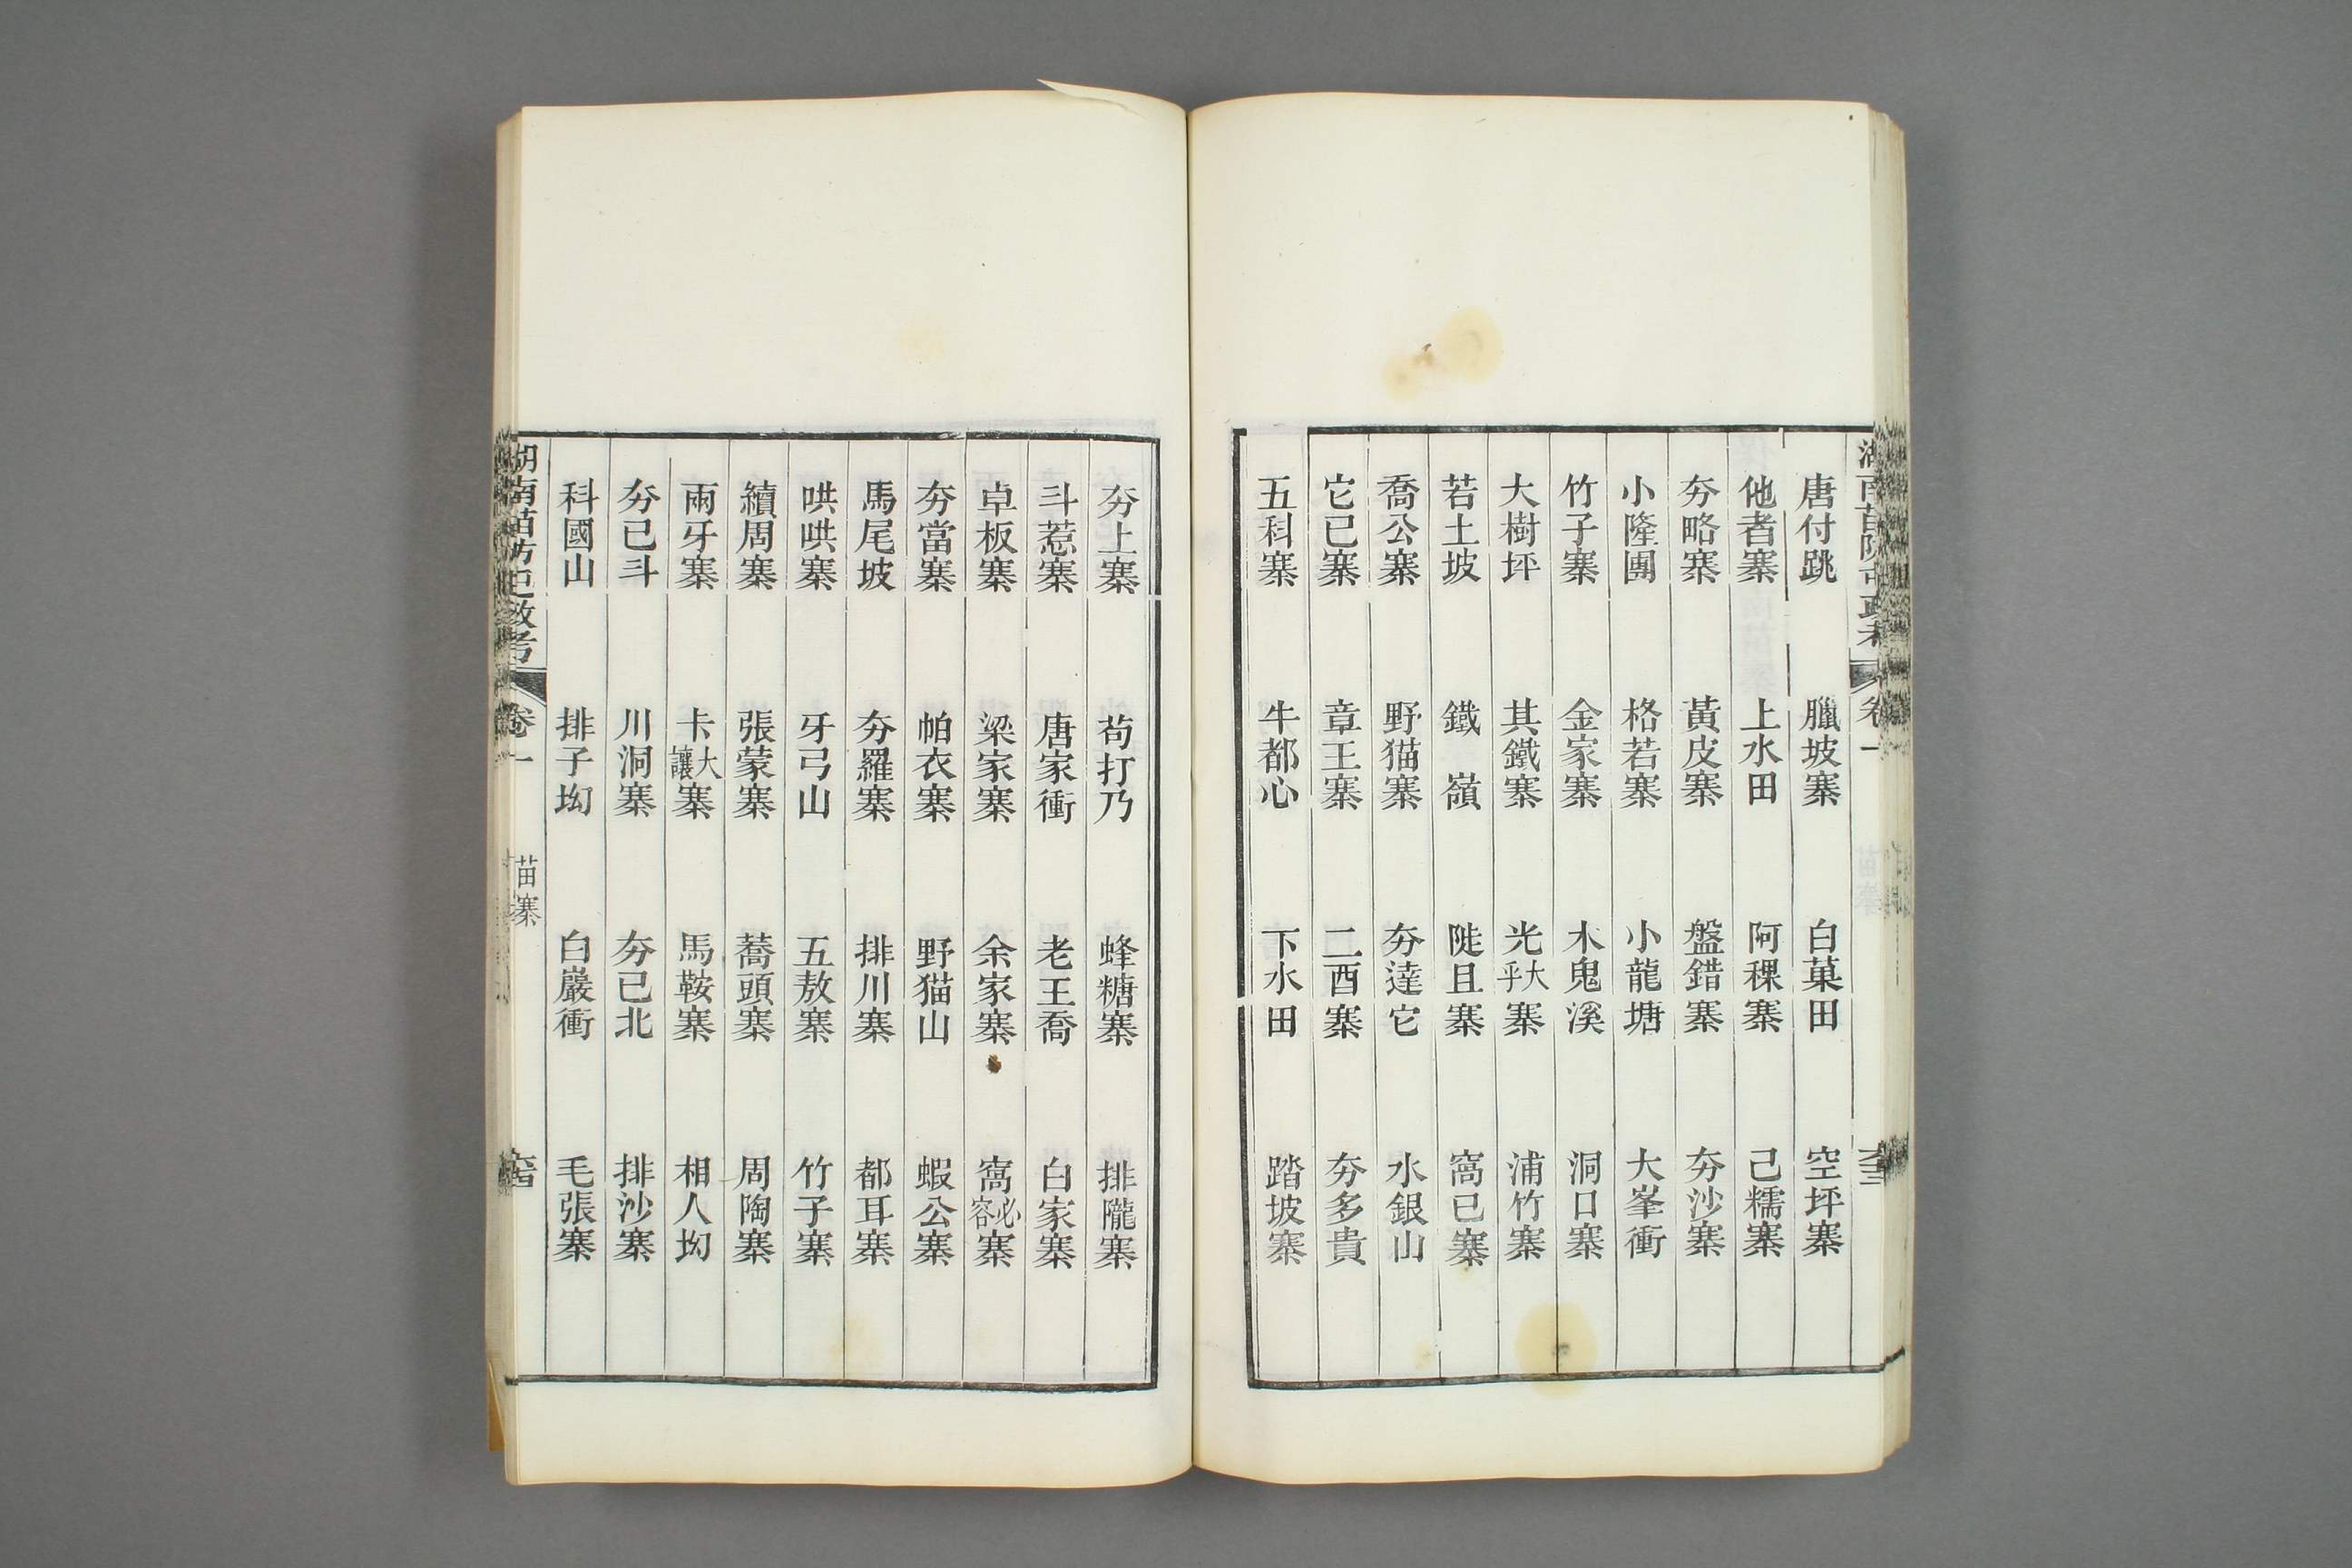 唐付跳 臘坡寨 白菓田 空坪寨
他者寨 上水田 阿稞寨 己糯寨
夯略寨 黃皮寨 盤錯寨 夯沙寨
小隆團 格若寨 小龍塘 大峯衝
竹子寨 金家寨 木鬼溪 洞口寨
大樹坪 其鐵寨 光大乎寨 浦竹寨
若土坡 鐵嶺 陡且寨 窩已寨
喬公寨 野猫寨 夯達它 水銀山
它已寨 章王寨 二酉寨 夯多貴
五科寨 牛都心 下水田 踏坡寨
夯上寨 茍打乃 蜂糖寨 排隴寨
斗惹寨 唐家衝 老王喬 白家寨
卓板寨 梁家寨 余家寨 窩必容寨
夯當寨 帕衣寨 野猫山 蝦公寨
馬尾坡 夯羅寨 排川寨 都耳寨
哄哄寨 牙弓山 五敖寨 竹子寨
續周寨 張蒙寨 蕎頭寨 周陶寨
兩牙寨 卡大讓寨 馬鞍寨 相人坳
夯已斗 川洞寨 夯已北 排沙寨
科國山 排子坳 白巖衝 毛張寨
湖南苗防屯政考 卷一 苗寨